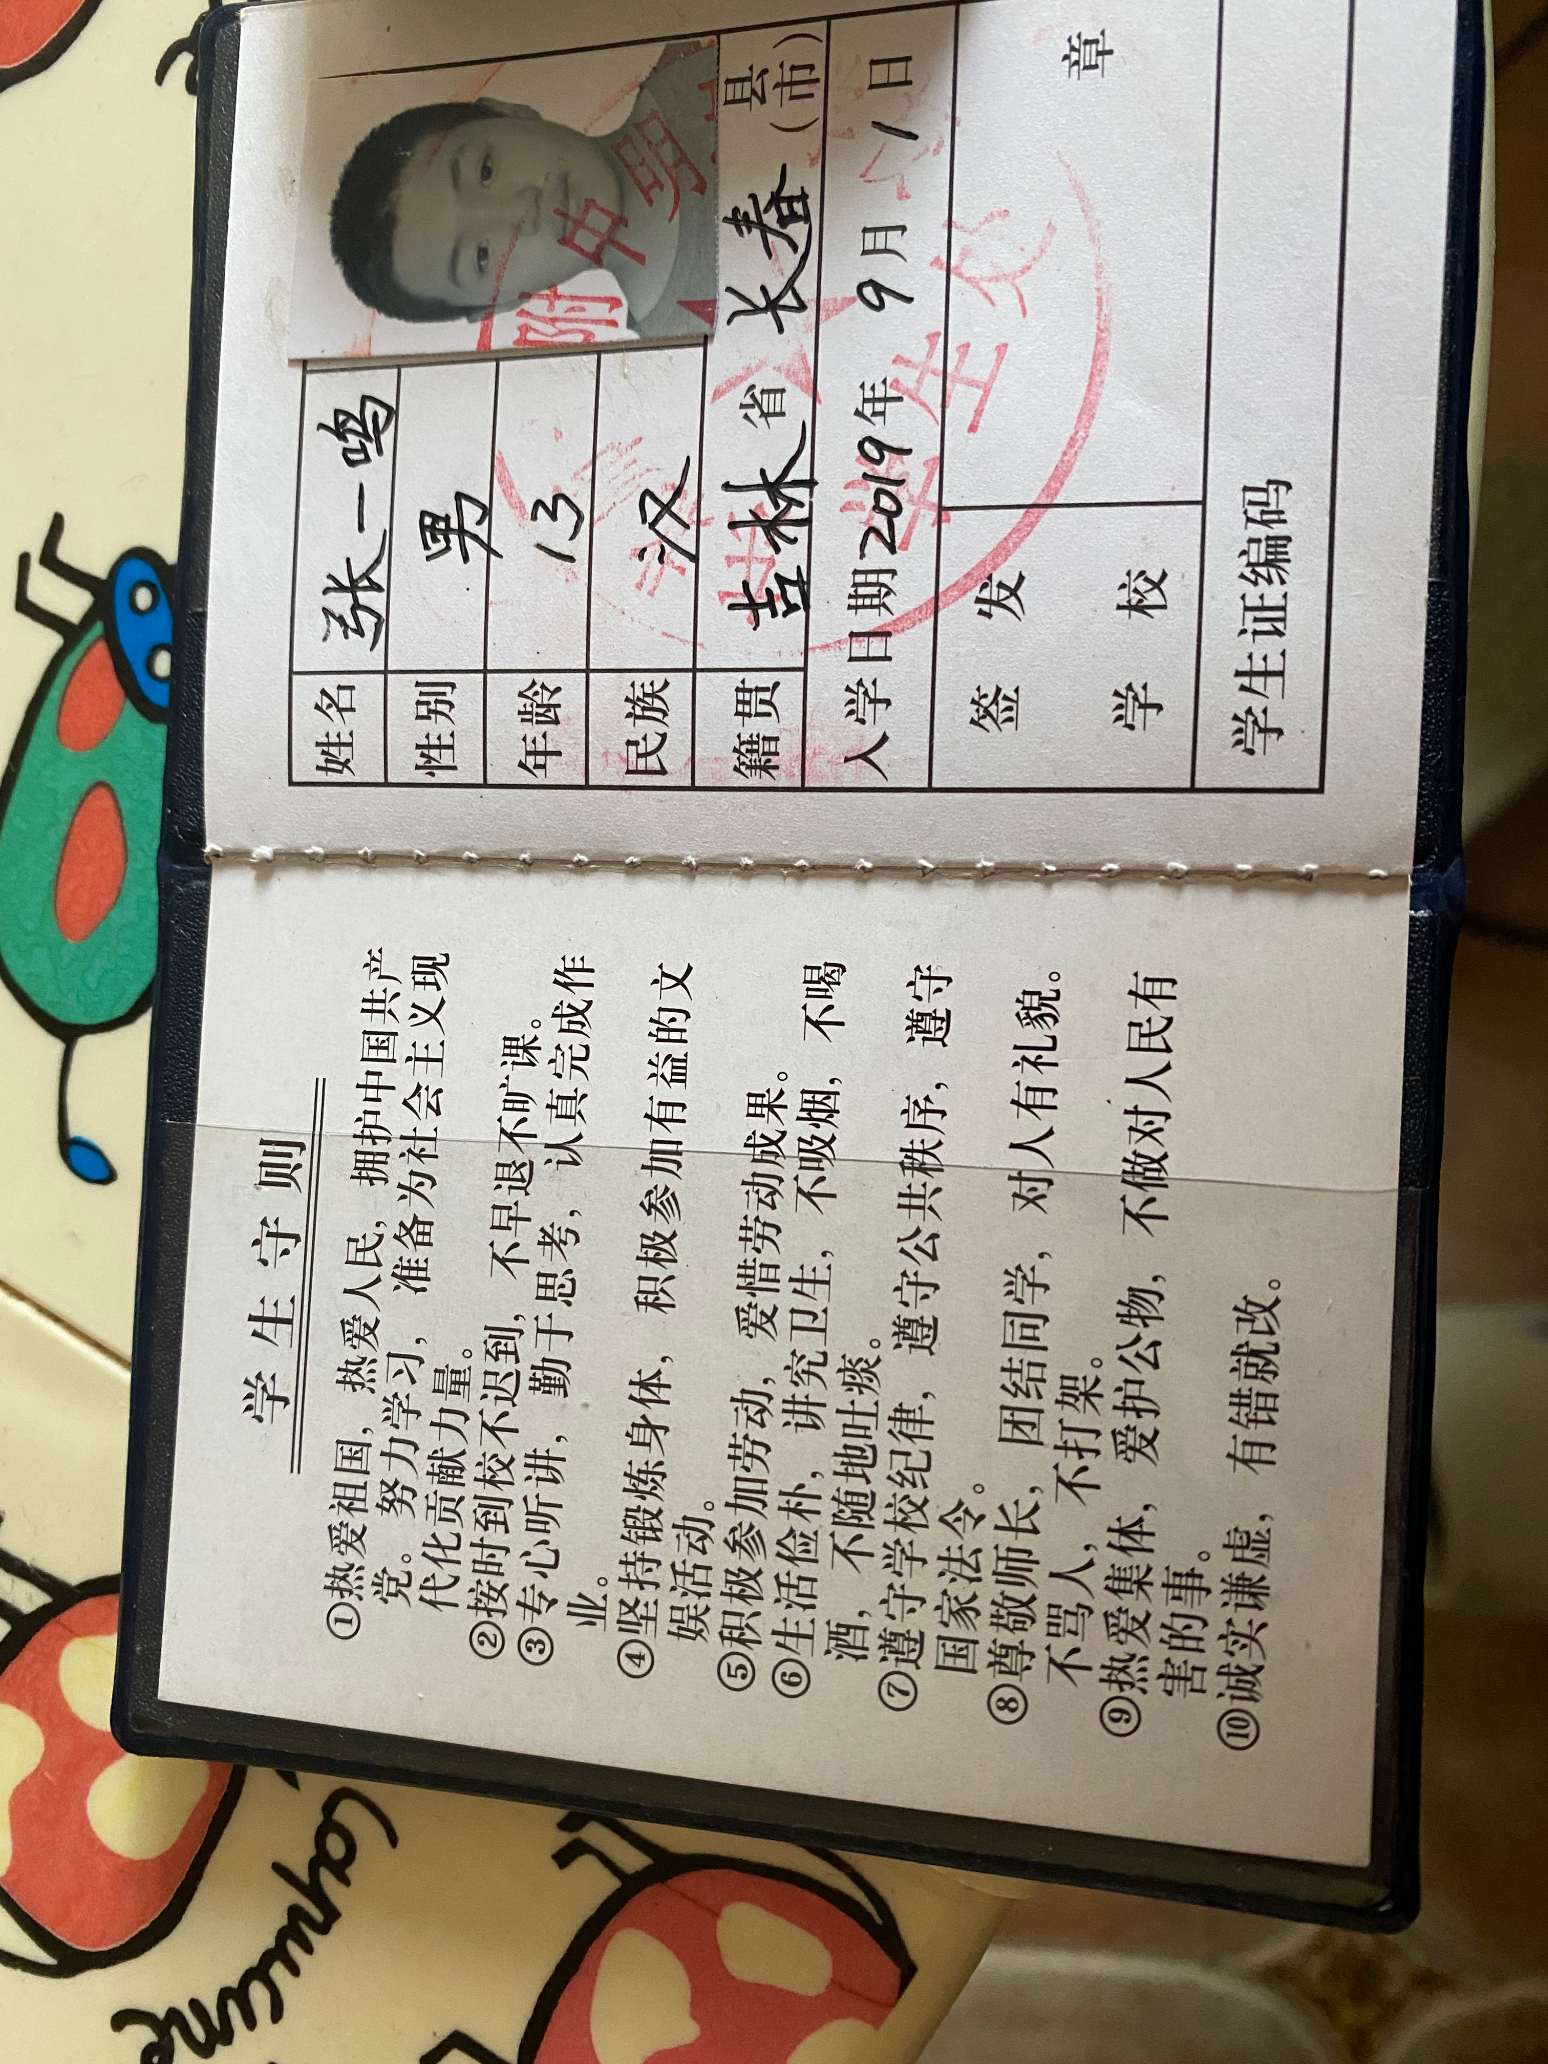 学生守则
①热爱祖国，热爱人民，拥护中国共产
党。努力学习，准备为社会主义现
代化贡献力量。
②按时到校不迟到，不早退不旷课。
③专心听讲，勤于思考，认真完成作
业。
④坚持锻炼身体，积极参加有益的文
娱活动。
⑤积极参加劳动，爱惜劳动成果。
⑥生活俭朴，讲究卫生，不吸烟，不喝
酒，不随地吐痰。
⑦遵守学校纪律，遵守公共秩序，遵守
国家法令。
⑧尊敬师长，团结同学，对人有礼貌。
不骂人，不打架。
⑨热爱集体，爱护公物，不做对人民有
害的事。
⑩诚实谦虚，有错就改。
姓名 张一鸣
性别 男
年龄 13
民族 汉
籍贯 吉林省长春县（市）
入学日期2019年9月1日
签发
学校
章
学生证编码
附中明
学生处